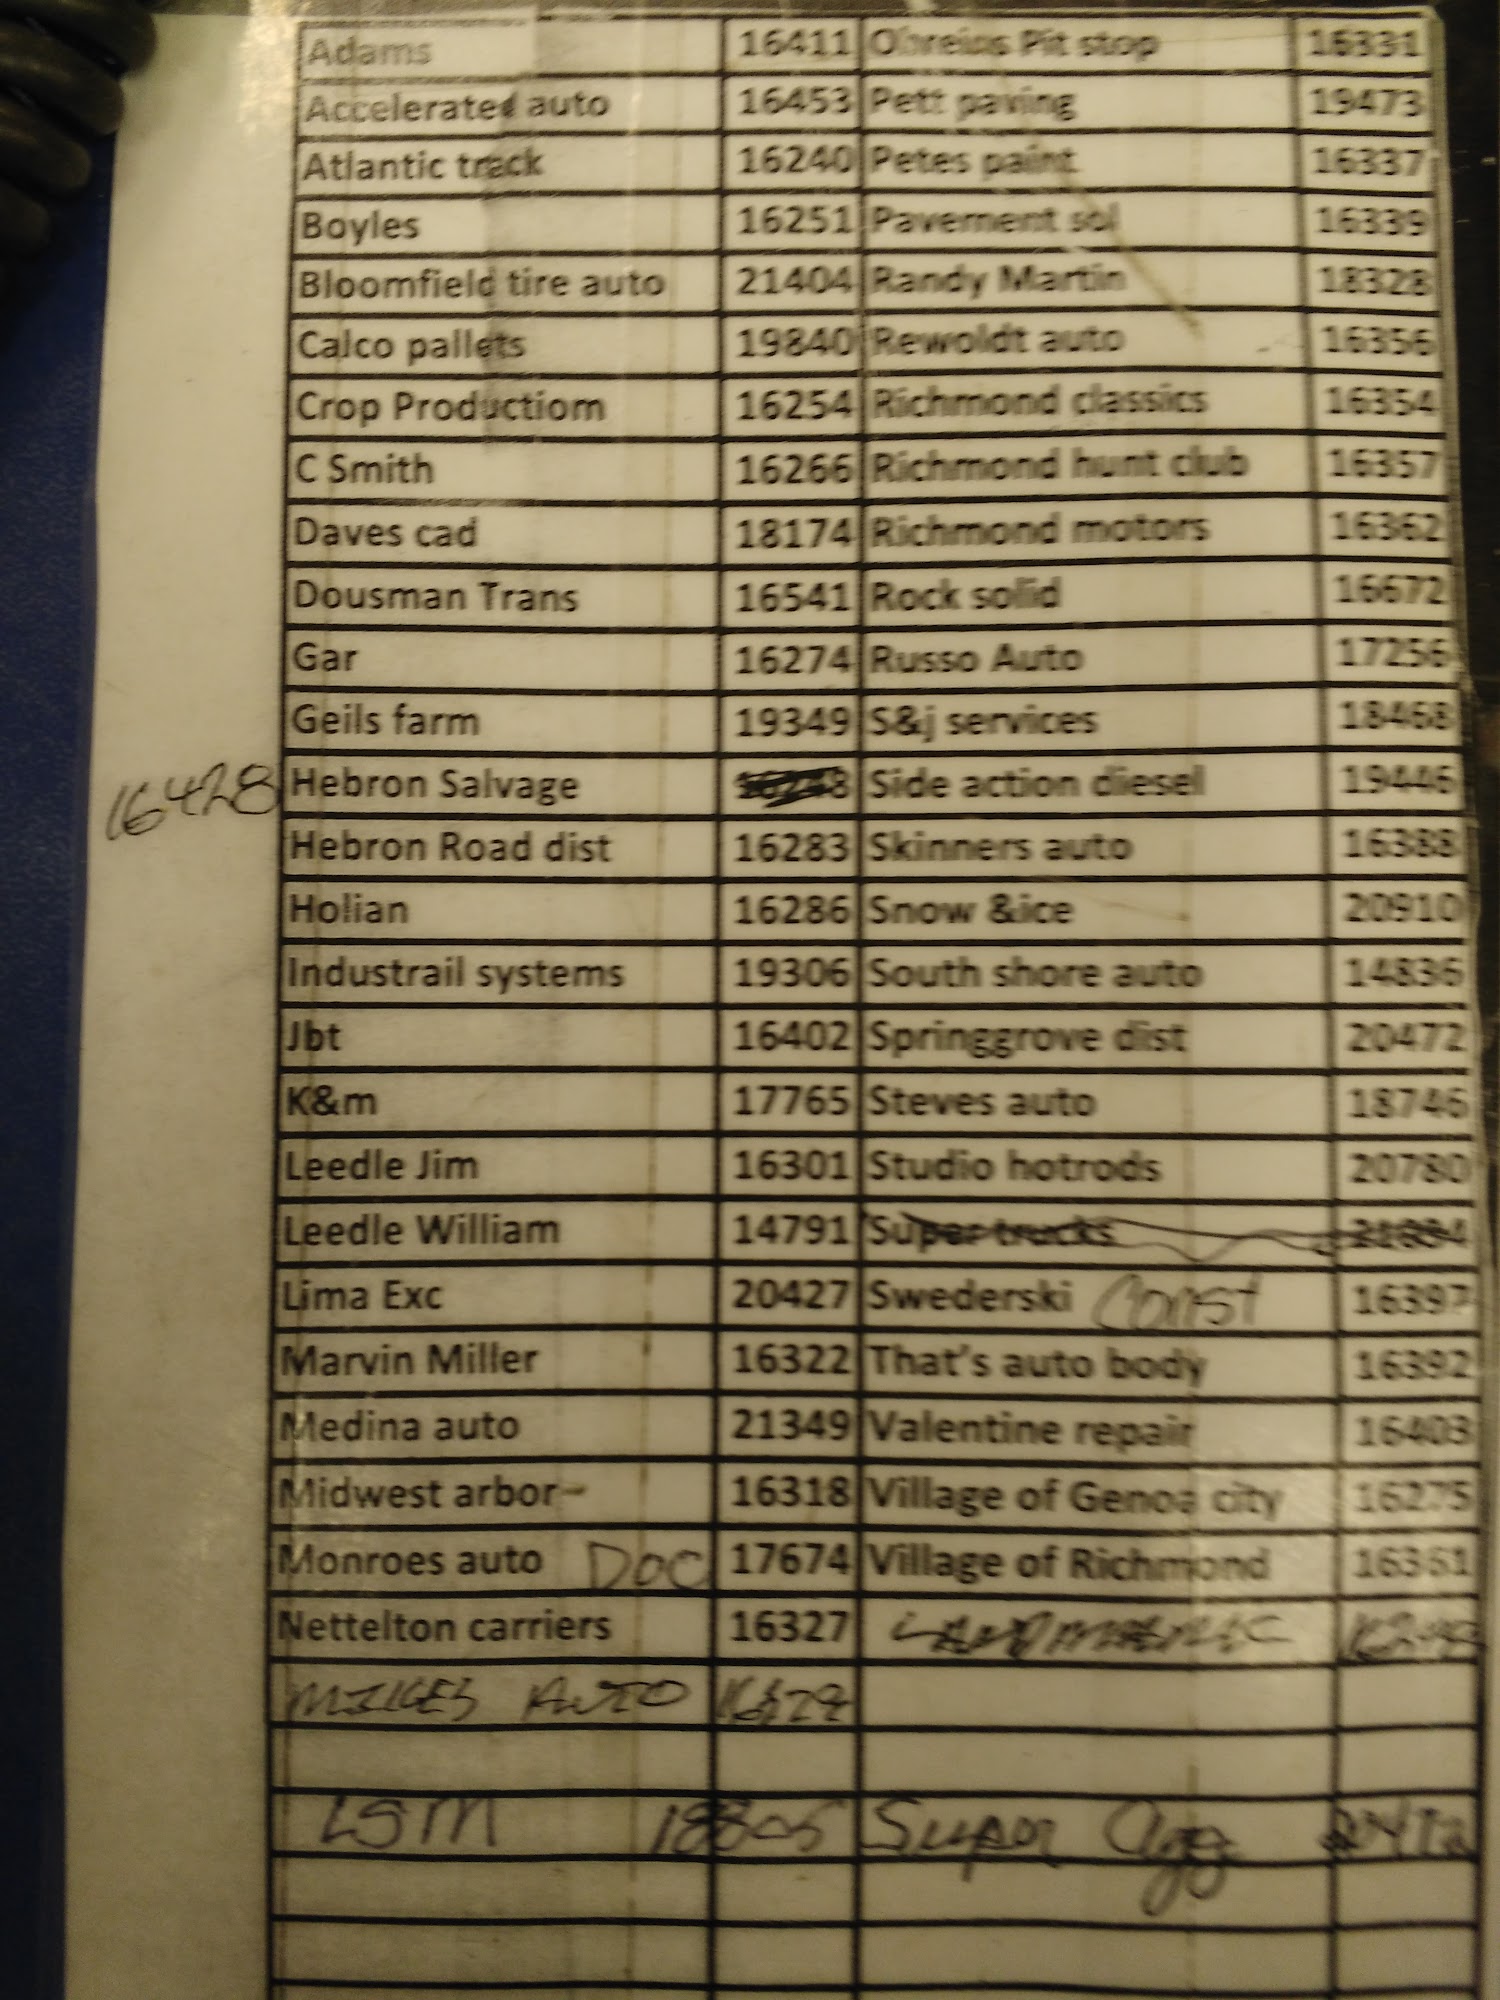 Adams 16411 Obreins Pit stop 16331
Accelerated auto 16453 Pett paving 19473
Atlantic track 16240 Petes paint 16337
Boyles 16251 Pavement sol 16339
Bloomfield tire auto 21404 Randy Martin 18328
Calco pallets 19840 Rewoldt auto 16356
Crop Productiom 16254 Richmond classics 16354
C Smith 16266 Richmond hunt club 16357
Daves cad 18174 Richmond motors 16362
Dousman Trans 16541 Rock solid 16672
Gar 16274 Russo Auto 17256
Geils farm 19349 S&j services 18468
16428 Hebron Salvage Side action diesel 19446
Hebron Road dist 16283 Skinners auto 16388
Holian 16286 Snow &ice 20910
Industrail systems 19306 South shore auto 14836
Jbt 16402 Springgrove dist 20472
K&m 17765 Steves auto 18746
Leedle Jim 16301 Studio hotrods 20780
Leedle William 14791 Super trucks
Lima Exc 20427 Swederski Const 16397
Marvin Miller 16322 That's auto body 16392
Medina auto 21349 Valentine repair 16403
Midwest arbor- 16318 Village of Genoa city 16275
Monroes auto DOC 17674 Village of Richmond 16361
Nettelton carriers 16327
MIKES AUTO
LSM 18805 Super Agg